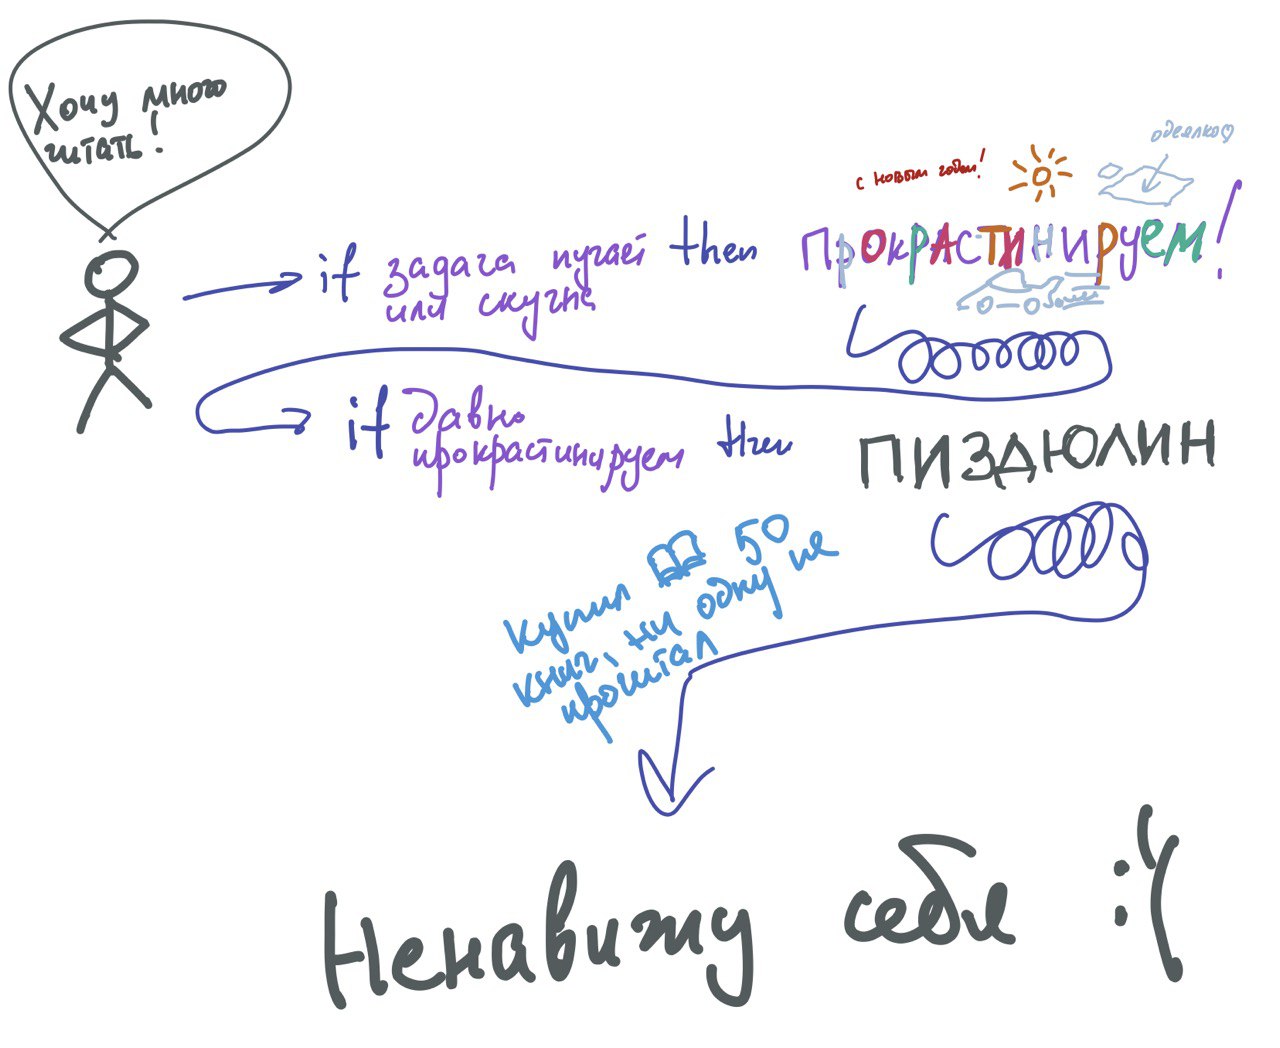 Хочу много
читать!
с новым годом!
одеялко♡
if задача пугает then ПрокрАСТИНИруем!
или скучна
if давно
прокрастинируем then ПИЗДЮЛИН
Купил 50
книг, ни одну не
прочитал
Ненавижу себя :'(